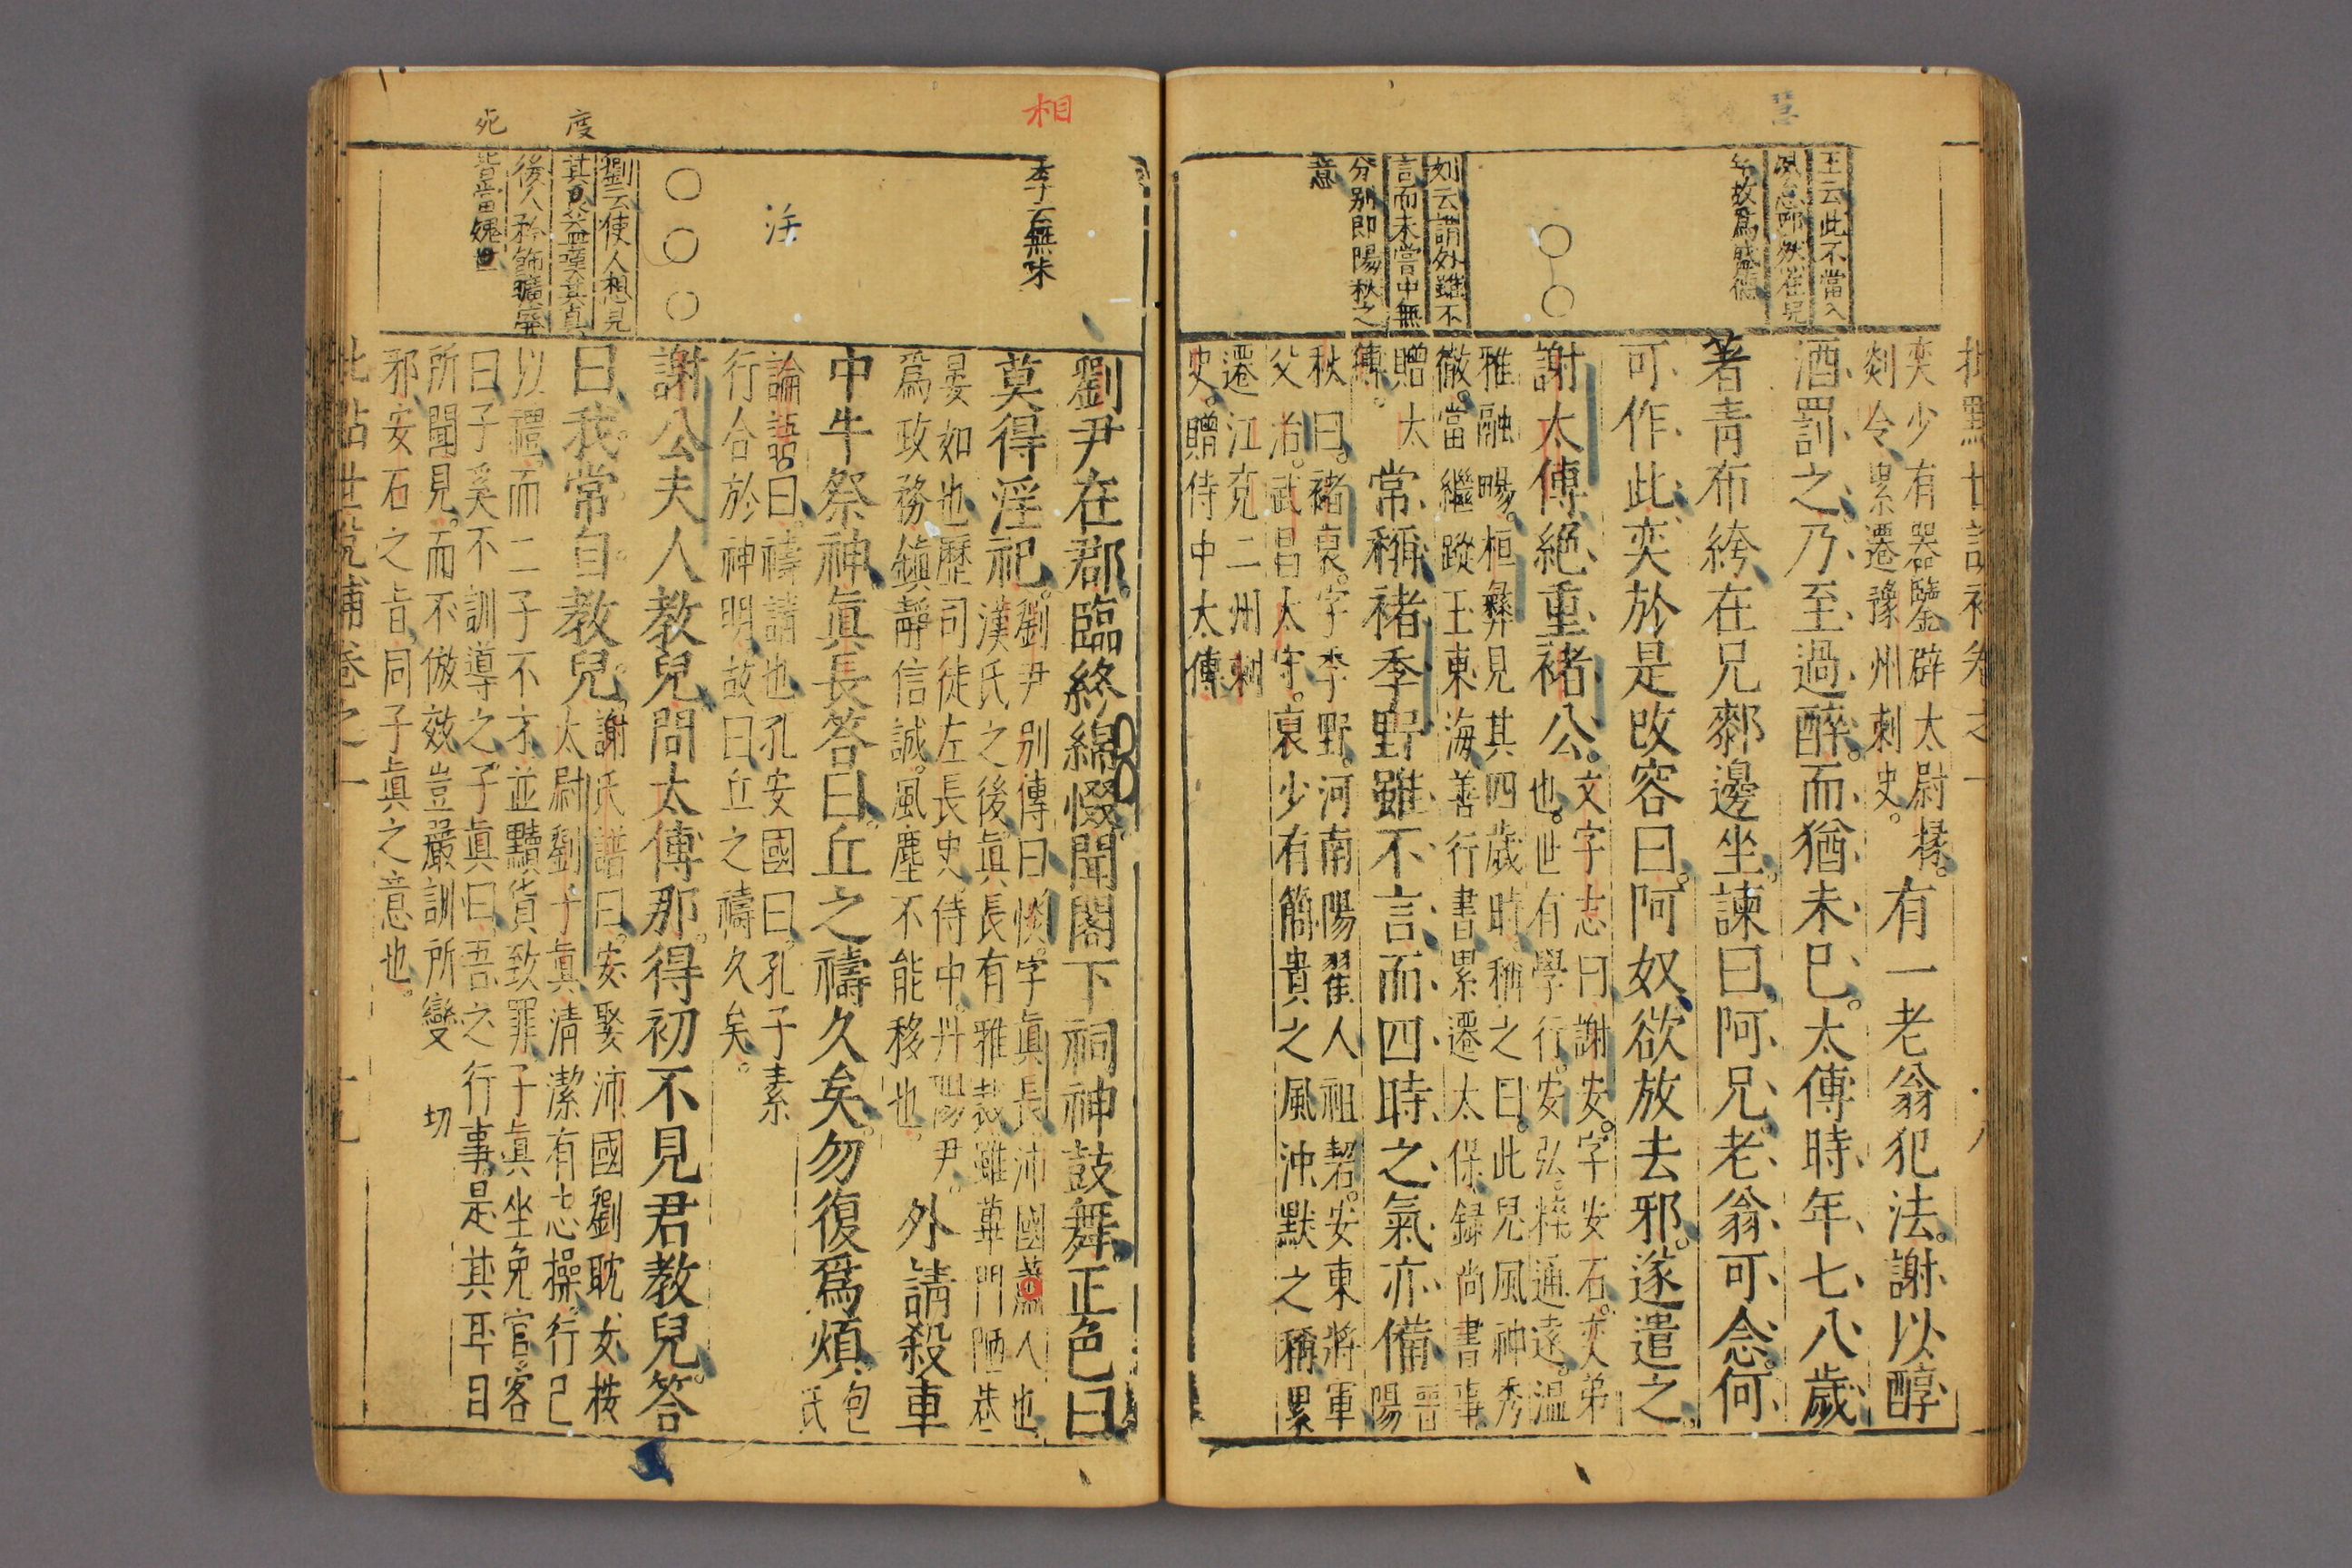 王云此不當入
風惡耶然在兒
年故爲盛德
劉云謂外雖不
言而未嘗中無
分别即陽秋之
意
奕少有器鑒辟太尉掾
剡令累遷豫州刺史。有一老翁犯法。謝以醇
酒罰之。乃至過醉。而猶未已。太傅時年七八歲
著青布絝在兄鄰邊坐。諫曰。阿兄。老翁可念。何
可作此。奕於是改容曰。阿奴欲放去邪。遂遣之
謝太傅絕重褚公。文字志曰謝安。字安石。奕弟
也。世有學行。安弘粹通遠。溫
雅融暢。桓彝見其四歲時。稱之曰。此兒風神秀
徹。當繼蹤王東海善行書累遷太保錄尚書事
贈太傅。常稱褚季野雖不言而四時之氣亦備 晉陽
秋曰。褚裒。字季野。河南陽翟人祖䂮。安東將軍
父洽。武昌太守。裒少有簡貴之風沖默之稱累
遷江兗二州刺
史。贈侍中太傅
相
李云無味
劉尹在郡臨終綿惙聞閣下祠神鼓舞。正色曰
莫得淫祀。劉尹别傳曰惔。字眞長沛國蕭人也
漢氏之後眞長有雅裁雖蓽門陋巷
晏如也歷司徒左長史侍中。丹陽尹。
爲政務鎮靜信誠。風塵不能移也。外請殺車
中牛祭神。眞長答曰。丘之禱久矣。勿復爲煩。包氏
論語曰。禱請也孔安國曰。孔子素
行合於神明。故曰丘之禱久矣。
注
謝公夫人教兒。問太傅那。得初不見君教兒。答
曰。我常自教兒。謝氏譜曰。安娶沛國劉耽女按
太尉劉子眞清潔有志操。行己
以禮。而二子不才並黷貨致罪。子眞坐免官。客
曰子奚不訓導之。子眞曰吾之行事是其耳目
所聞見。而不倣效豈嚴訓所變
切
邪安石之旨同子眞之意也。
度
死
劉云使人想見
後人矜飾曠
皆當媿世
批點世說補卷之一
十九